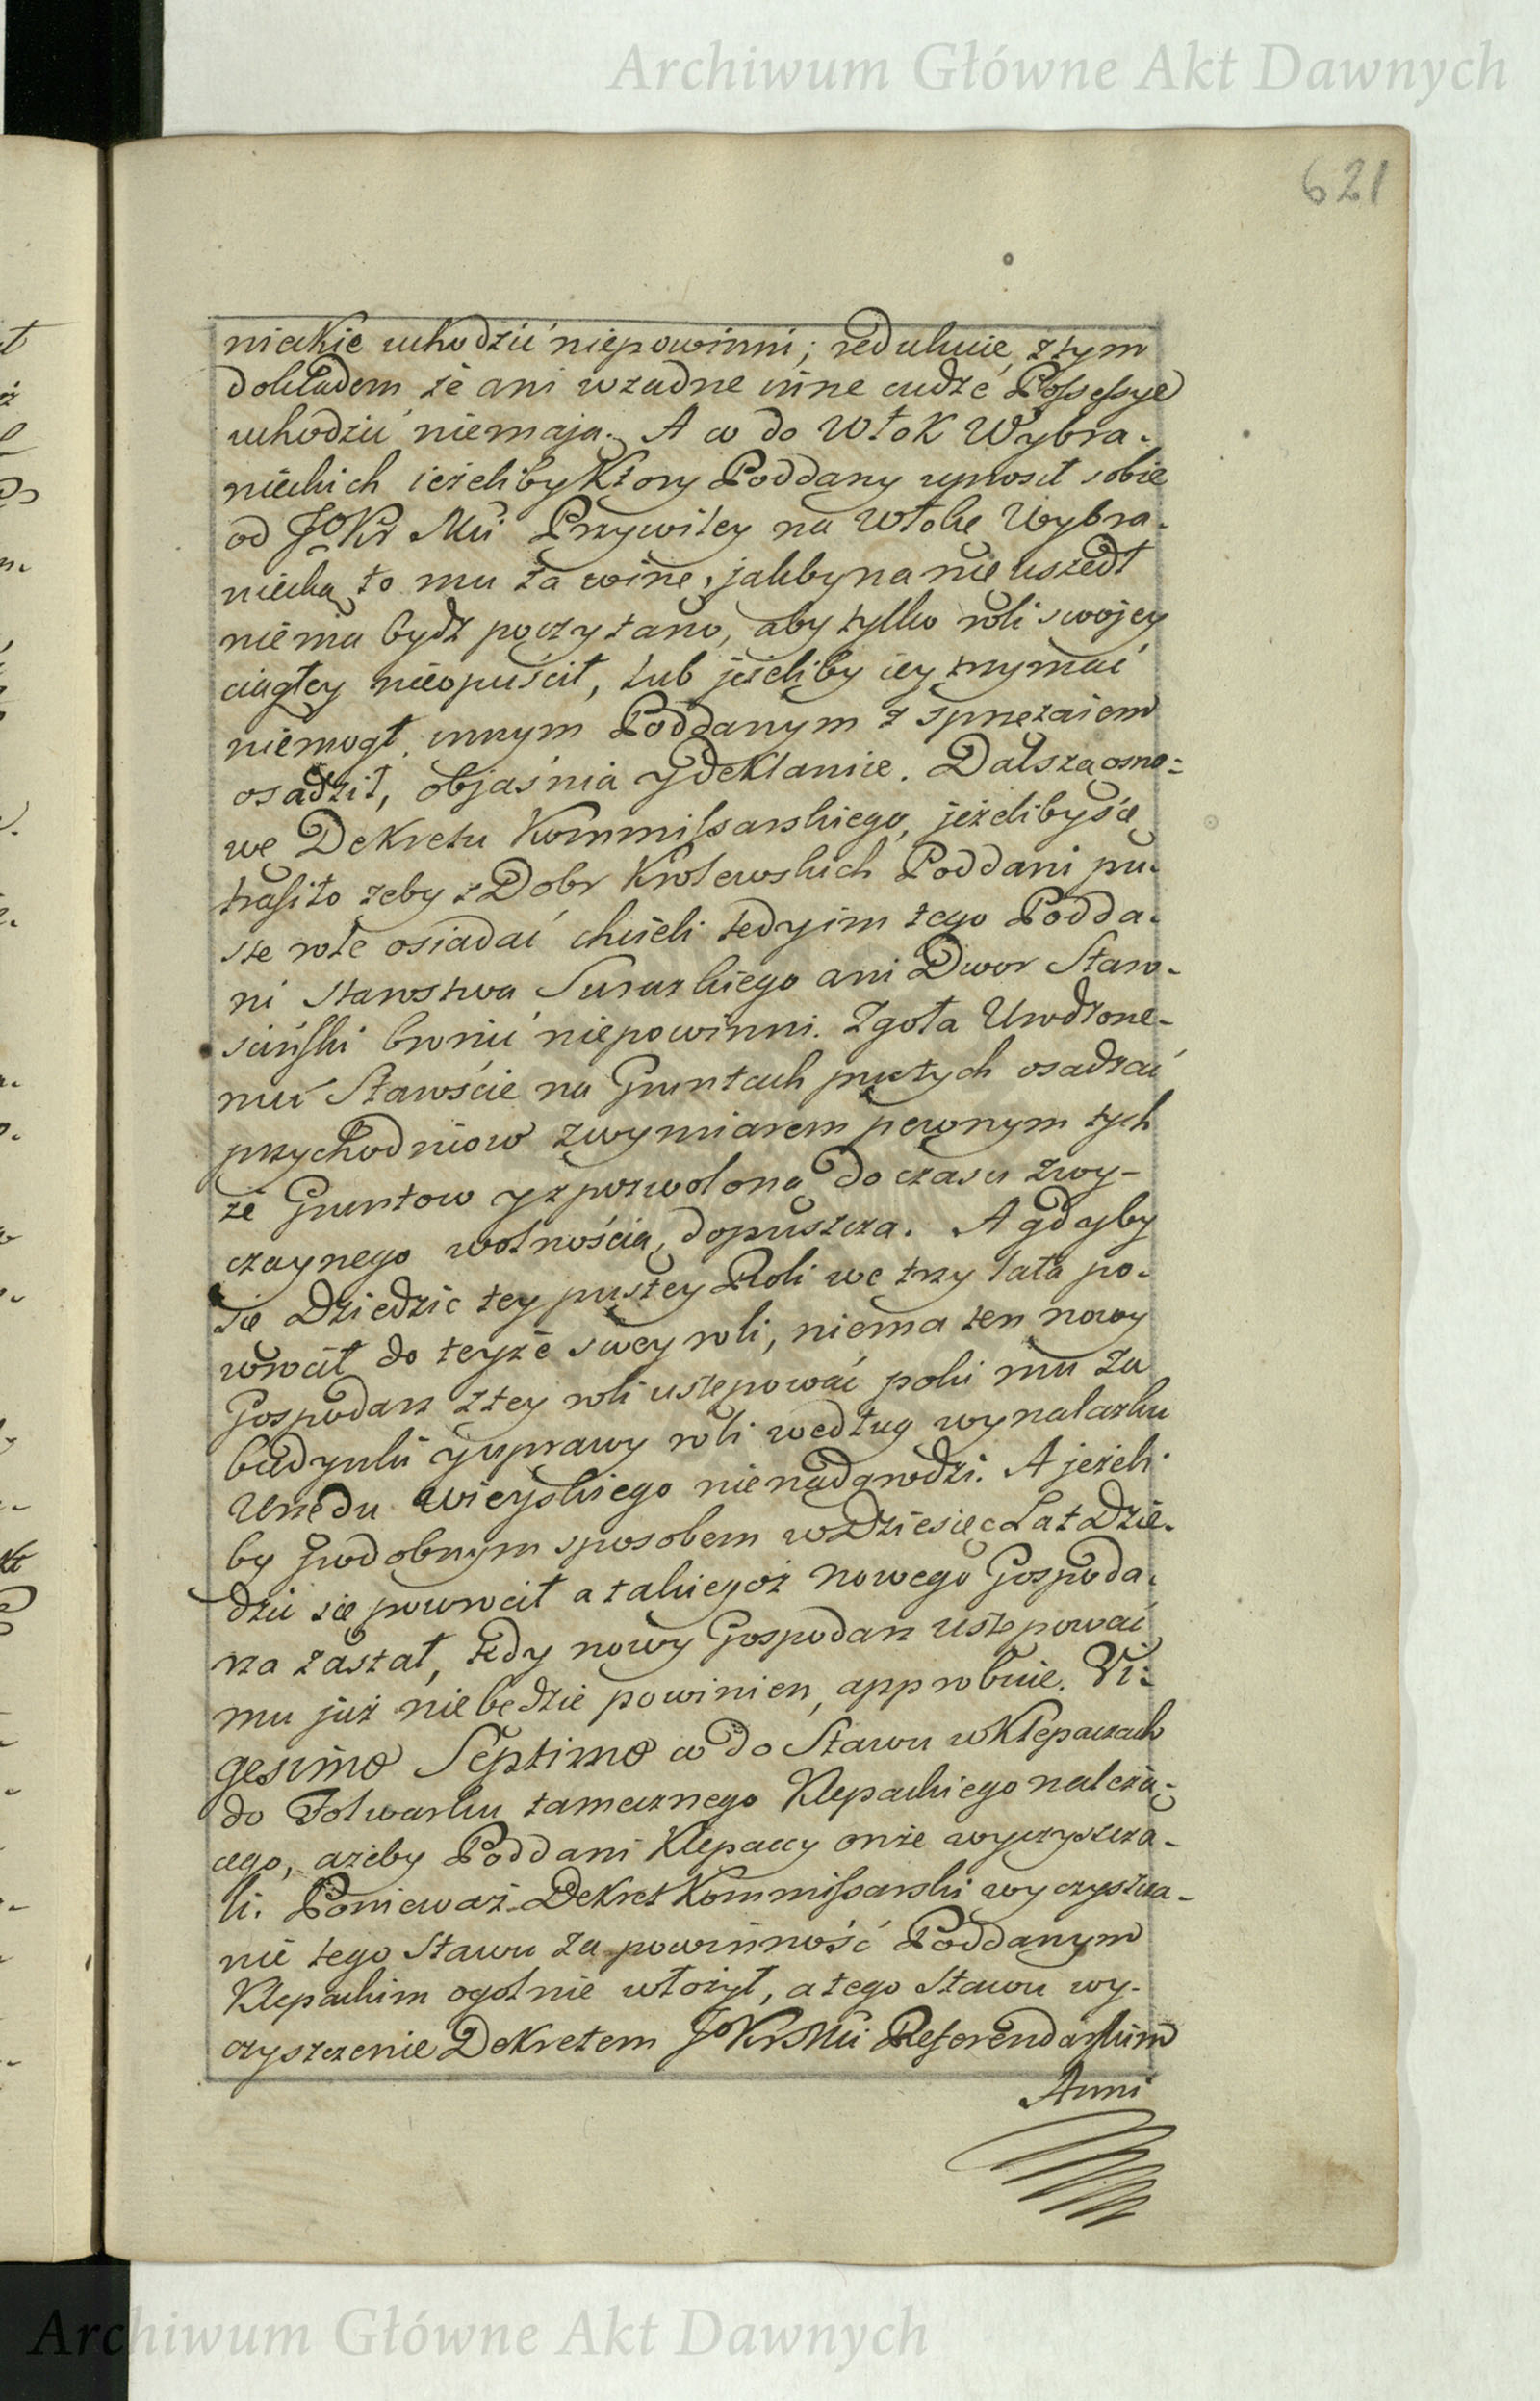 Archiwum Główne Akt Dawnych
621
nieckie wchodzić niepowinni; redukuie, z tym
dokładem że ani wżadne inne cudze Possessye
wchodzić niemaią. A co do Włok Wybra-
nieckich ieżeliby Ktory Poddany uprosił sobie
od JoKr Mci Przywiley na Włokę Wybra-
niecką to mu za winę, jakby na nię uszedł
niema bydź poczytano, aby tylko roli swojey
ciągłey nieopuścił, lub jeżeliby iey trzymać
niemogł innym Poddanym z sprzężaiem
osadził, objaśnia y deklaruie. Dalszą osno-
wę Dekretu Kommissarskiego, jeżelibyśię
trafiło żeby z Dobr Krolewskich Poddani pu-
ste role osiadać chcieli tedy im tego Podda-
ni Starostwa Suraskiego ani Dwor Staro-
ściński bronić niepowinni. Zgoła Urodzone-
mu Starośćie na Gruntach pustych osadzać
przychodniow z wymiarem pewnym tych
że Gruntow y z pozwoloną do czasu zwy-
czaynego wolnością, dopuszcza. A gdyby
się Dziedzic tey pustey Roli we trzy lata po-
wrocił do teyże swey roli, niema ten nowy
Gospodarz z tey roli ustępować poki mu za
budynki y uprawy roli według wynalazku
Urzędu Wieyskiego nienadgrodzi. A jeżeli-
by podobnym sposobem w Dziesięć Lat Dzie-
dzic się powrocił a takiegoż nowego Gospoda-
rza zastał, tedy nowy Gospodarz ustępować
mu już niebędzie powinien, approbuie. Vi-
gesimo Septimo co do Stawu w Klepaczach
do Folwarku tamecznego Klepackiego należą-
cego, ażeby Poddani Klepaccy onże wyczyszcza-
li. Ponieważ Dekret Kommissarski wyczyszcza-
nie tego Stawu za powinność Poddanym
Klepackim ogolnie włożył, a tego Stawu wy-
czyszczenie Dekretem JoKrMci Referendarskim
Anni
Archiwum Główne Akt Dawnych